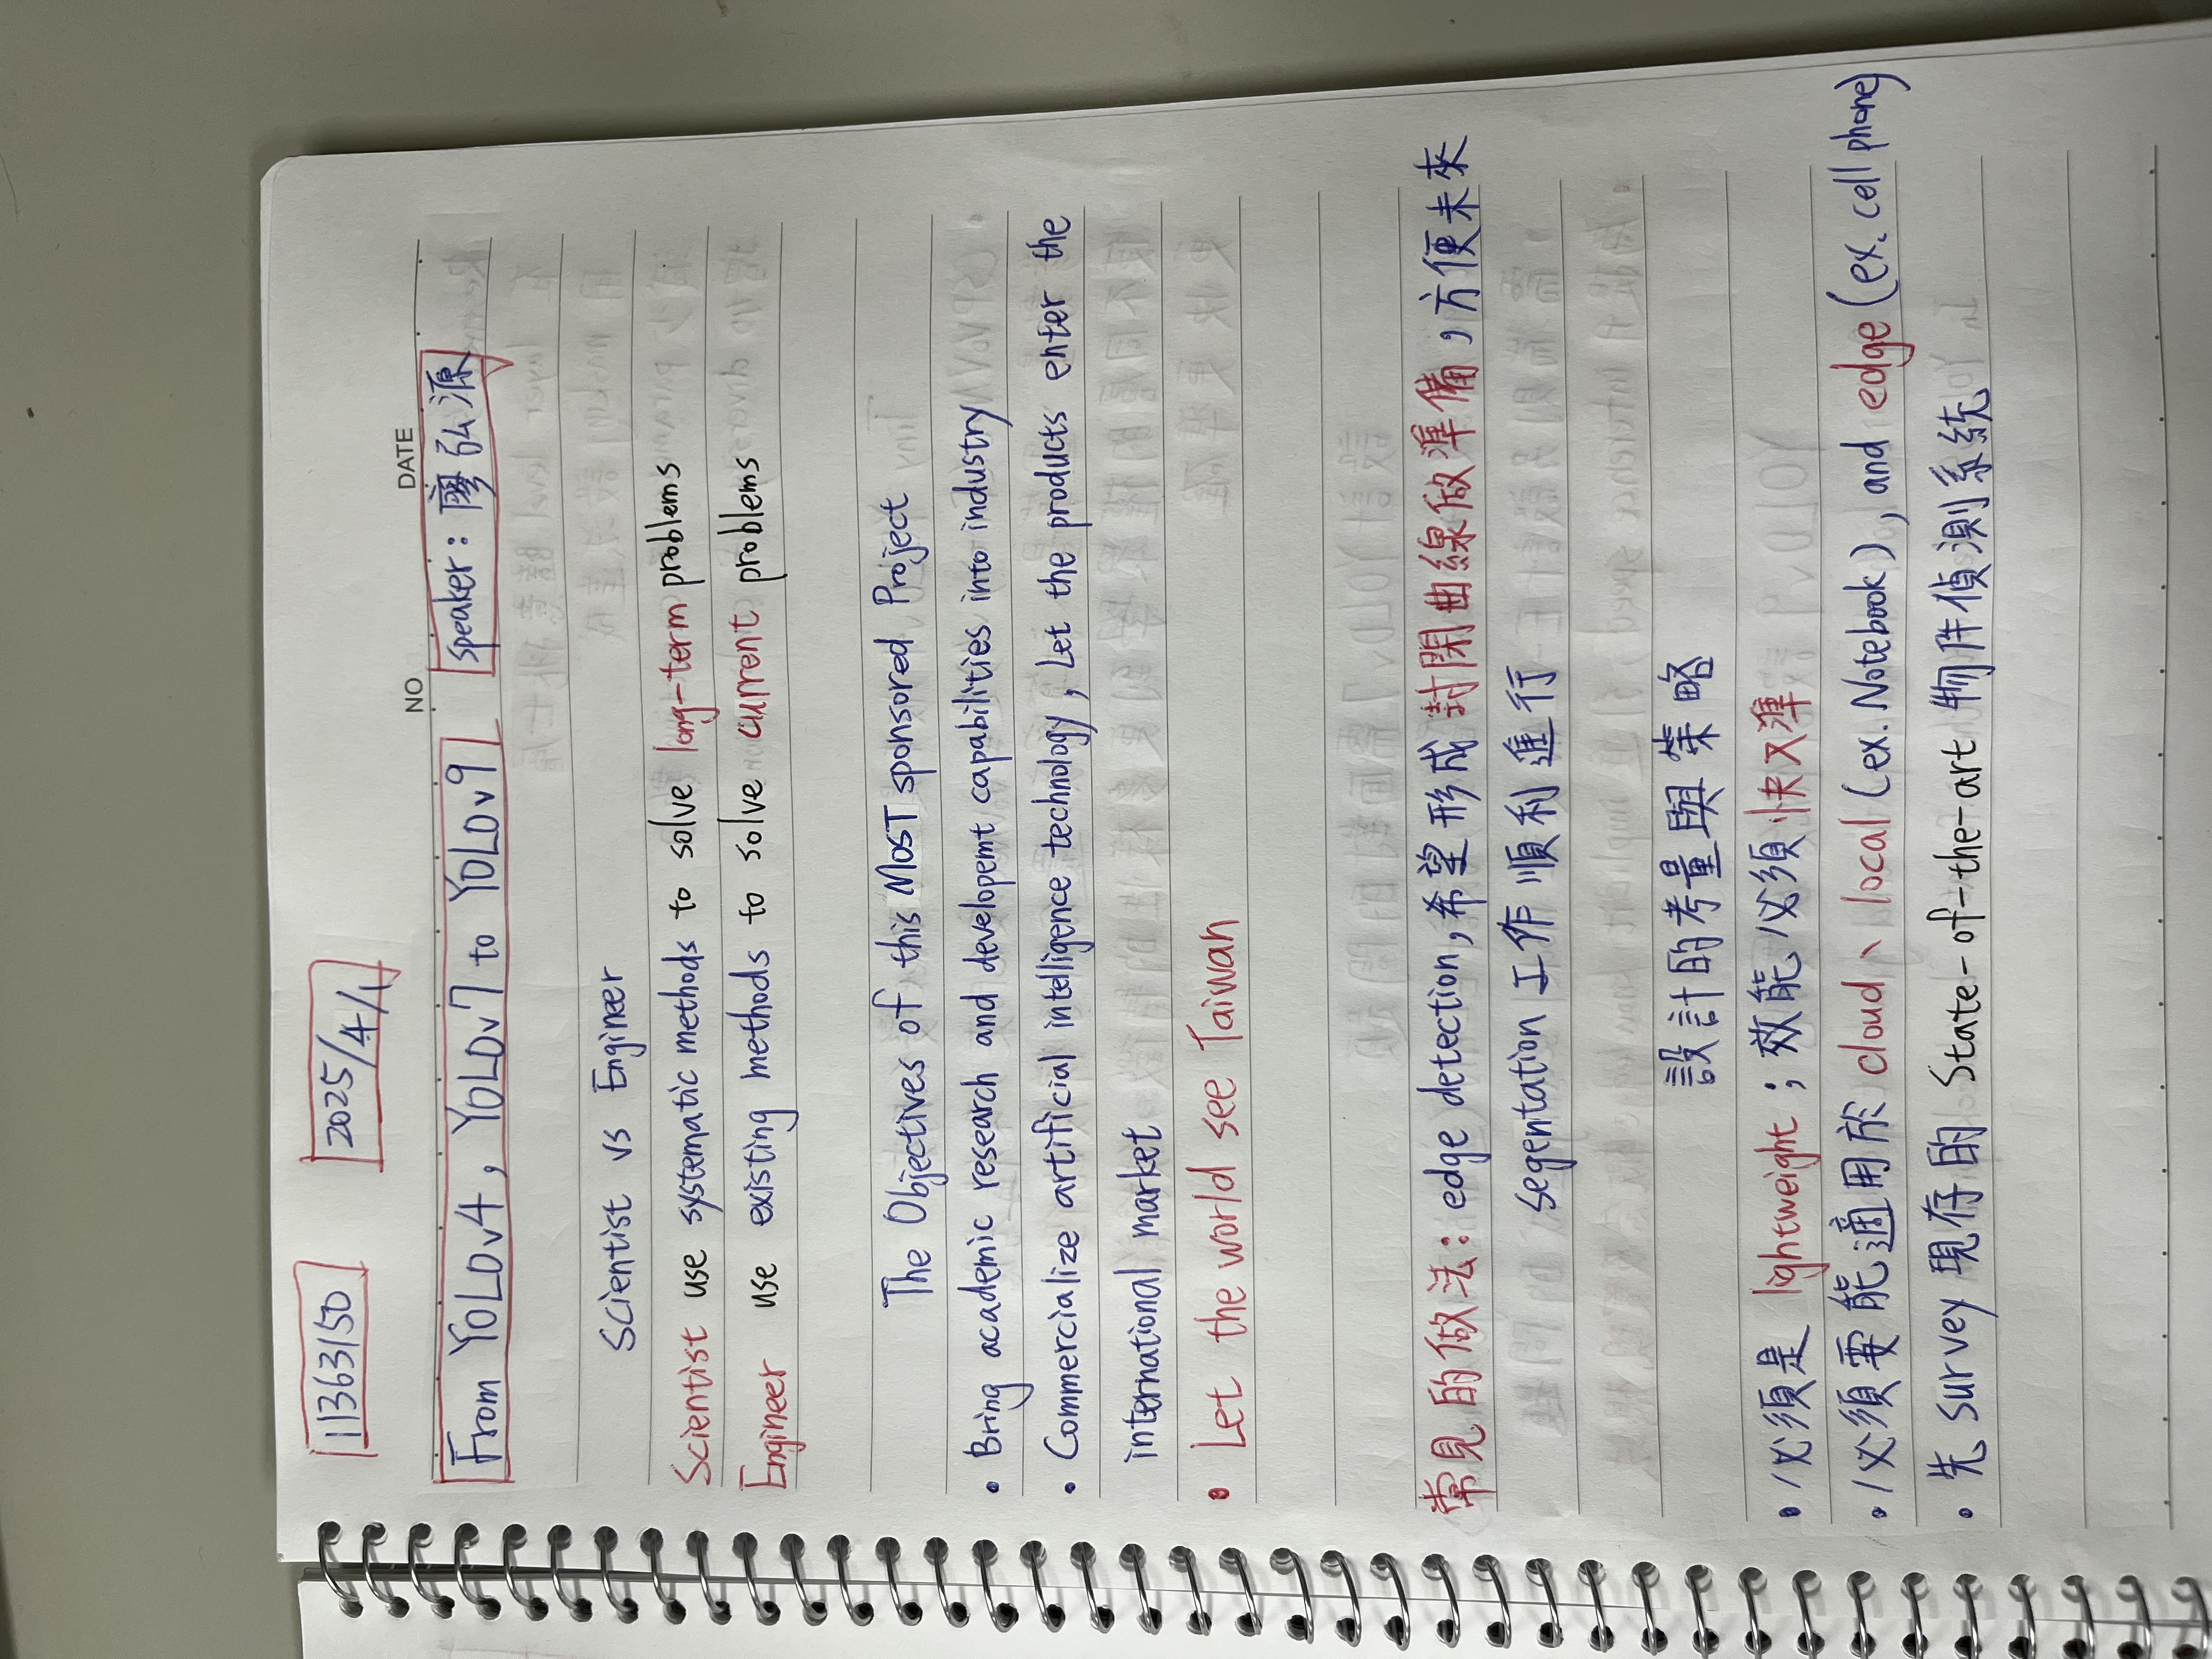 11363150 2025/4/1
NO DATE
From YOLOv4, YOLOv7 to YOLOv9 speaker: 廖弘源
Scientist vs Engineer
Scientist use systematic methods to solve long-term problems
Engineer use existing methods to solve current problems
The Objectives of this MOST sponsored Project
• Bring academic research and developemt capabilities into industry
• Commercialize artificial intelligence technology, Let the products enter the
international market
• Let the world see Taiwan
常見的做法: edge detection,希望形成封閉曲線做準備,方便未來
segentation 工作順利進行
設計的考量與策略
• 必須是 lightweight ; 效能必須快又準
• 必須要能適用於 cloud、local (ex. Notebook), and edge (ex. cell phone)
• 先 survey 現存的 State-of-the-art 物件偵測系統